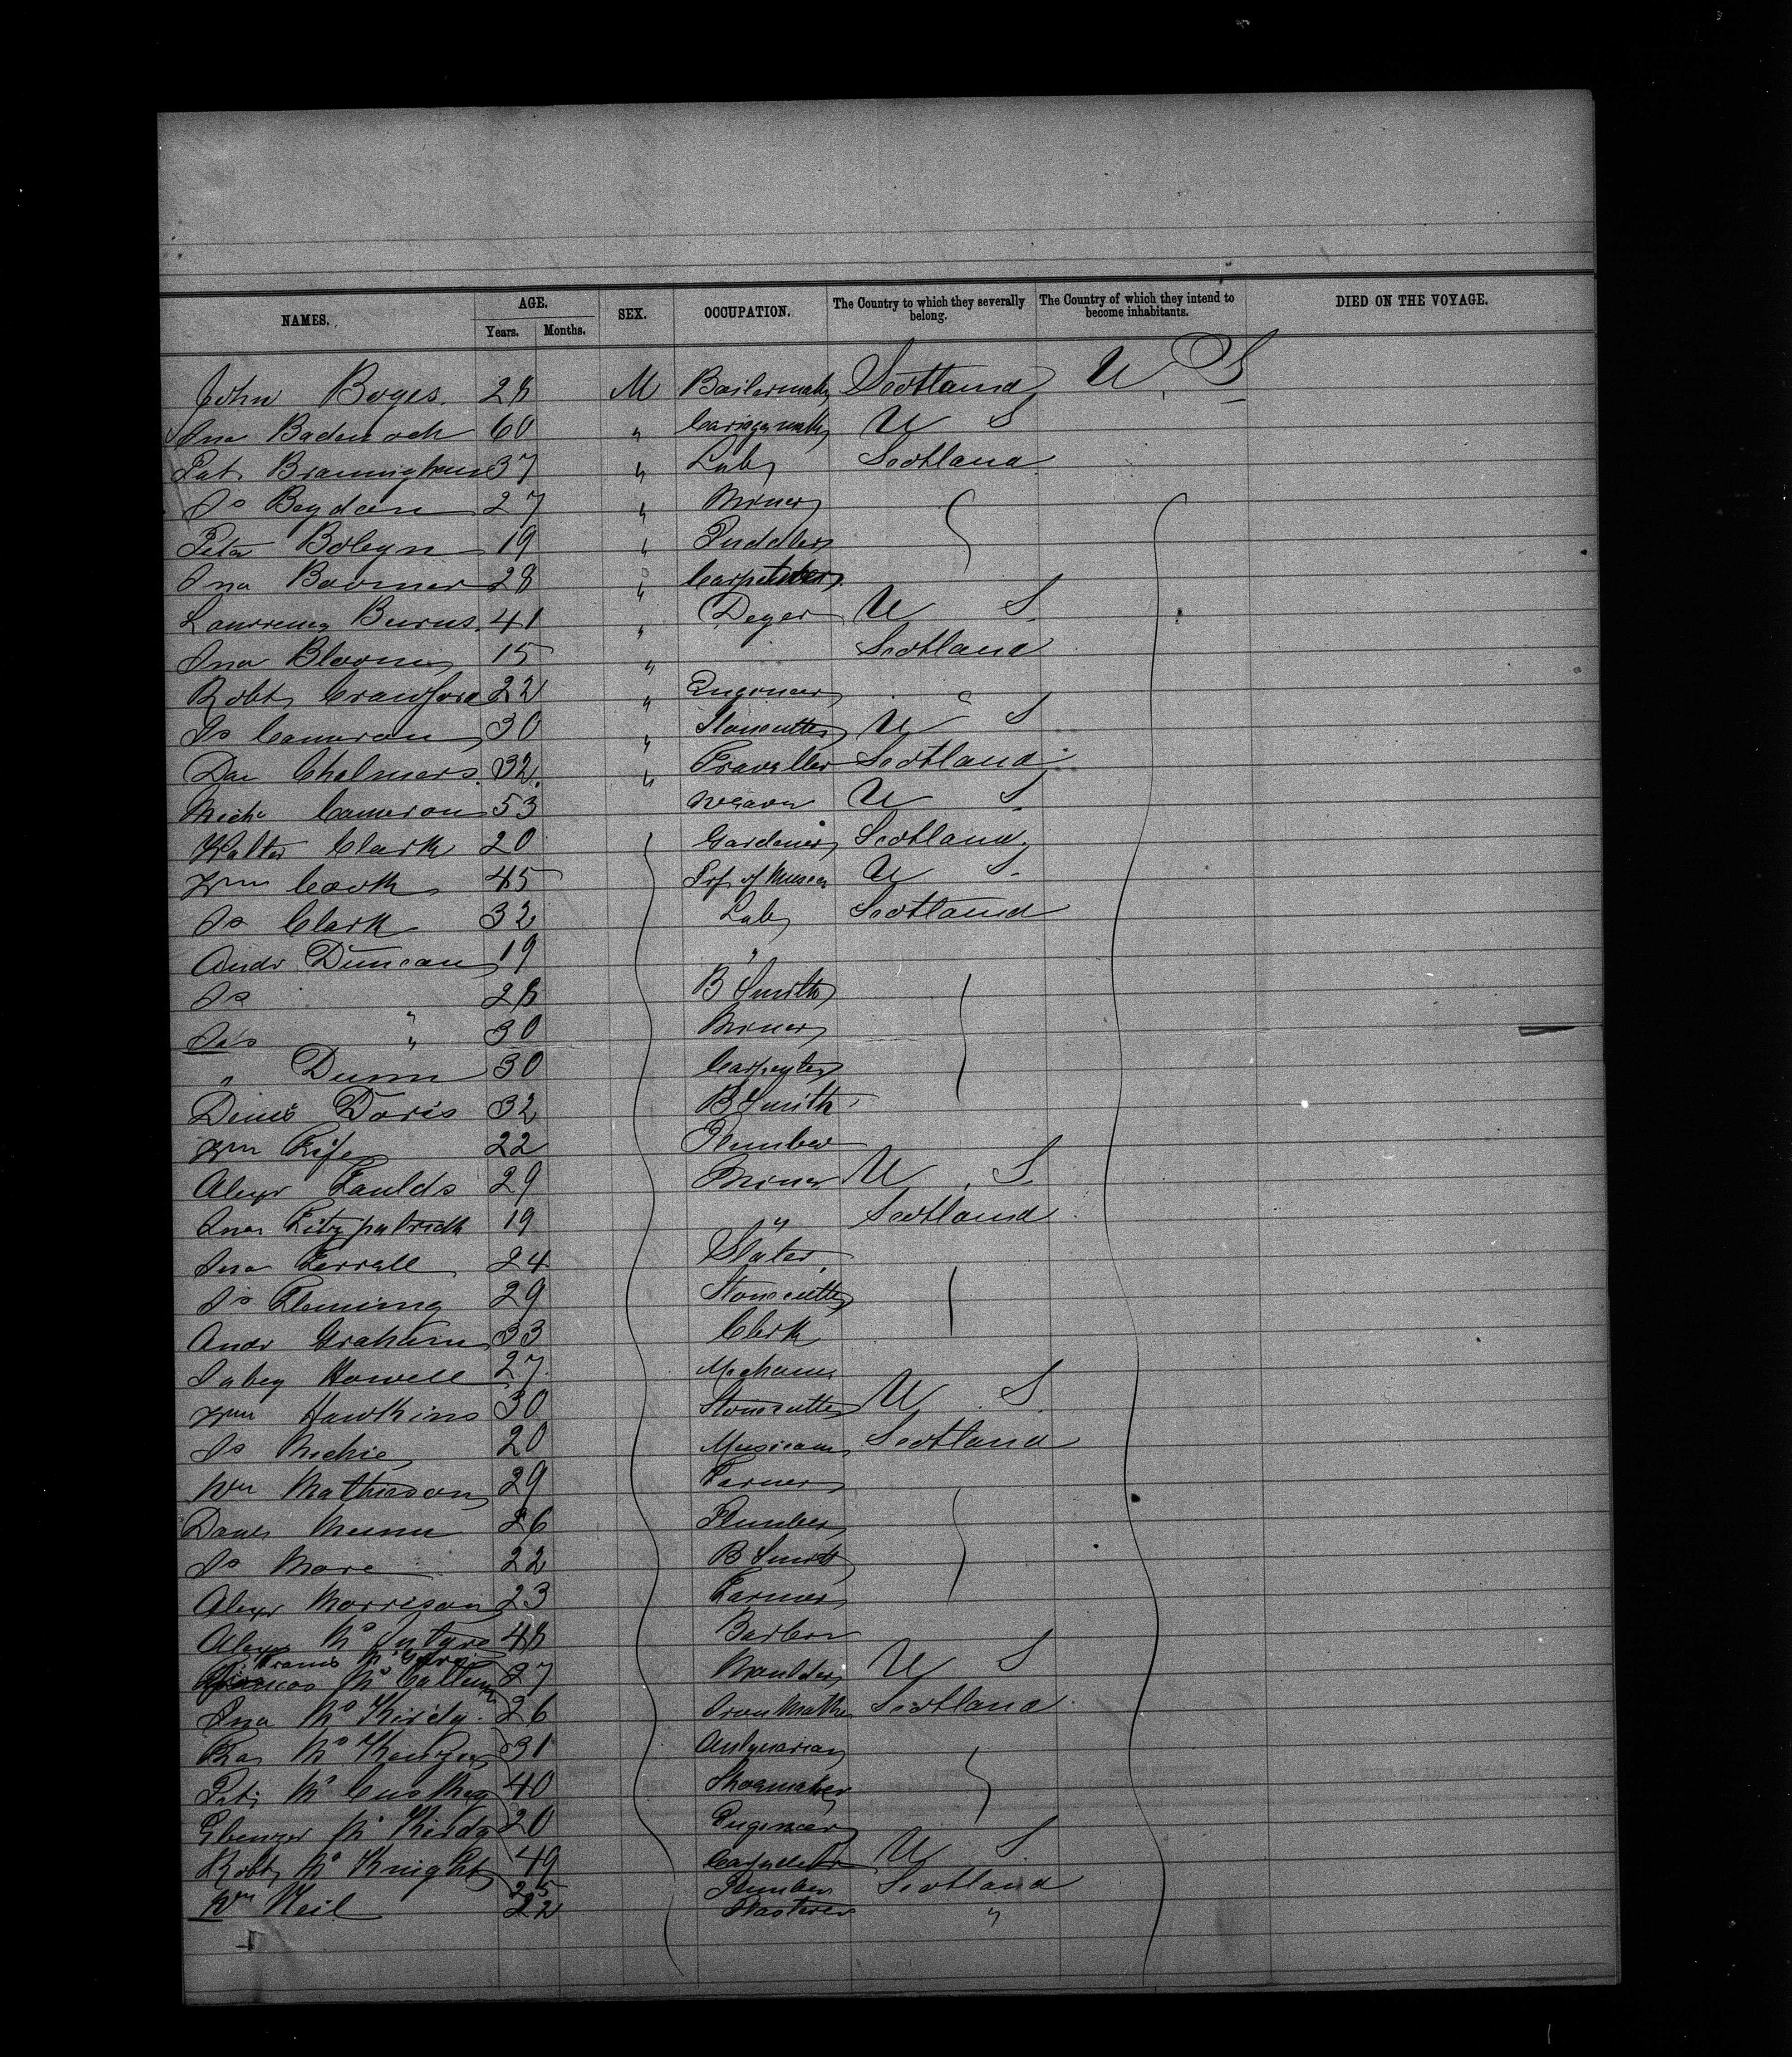 NAMES. AGE. SEX. OCCUPATION. The Country to which they severally belong. The Country of which they intend to become inhabitants. DIED ON THE VOYAGE.
Years. Months.
John Boges 28 M Boilermaker Scotland U. S
Jno Badenoch 60 " Cariagemaker U S
Pat. Branningham 37 " Lab Scotland
Js Bogdan 27 " Miner
Peter Bolegn 19 " Puddler
Jno Boomer 28 " Carpenter
Lawrence Burns 41 " Deyer U S
Jno Bloomer 15 " Scotland
Robt Crawford 22 " Engineer "
Js Cameron 30 " Stonecutter U S
Dav Chalmers 32 " Traveller Scotland
Michl Cameron 53 Weaver U S
Walter Clark 20 Gardener Scotland
Wm Cook 45 Prf of Music U S
Js Clark 32 Lab Scotland
Andr Duncan 19 "
Js " 28 B Smith
Jas " 30 Miner
" Dunn 30 Carpenter
Denis Doris 32 B Smith
Wm Fife 22 Plumber
Alexr Faulds 29 Miner U S
Jno Fitzpatrick 19 " Scotland
Jno Ferrell 24 Slater
Js Fleming 29 Stonecutter
Andr Graham 33 Clerk
Howell 27 Mechanic
Wm Hawkins 30 Stonecutter U S
Js Michie 20 Musician Scotland
Wm Mathieson 29 Farmer
Danl Munn 26 Plumber
Js More 22 B Smith
Alexr Morrison 23 Farmer
Alexr McIntyre 48 Barber
Francis
McCallum 27 Moulder U S
Jno McKirdy 26 Iron Maker Scotland
Thos McKenzie 31 Antquarian
Pat. McCuskey 40 Shoemaker
Ebenezer McKirdy 20 Engineer
Robt McKnight 49 Carpenter U S
25 Plumber Scotland
Wm Neil 22 Plasterer "